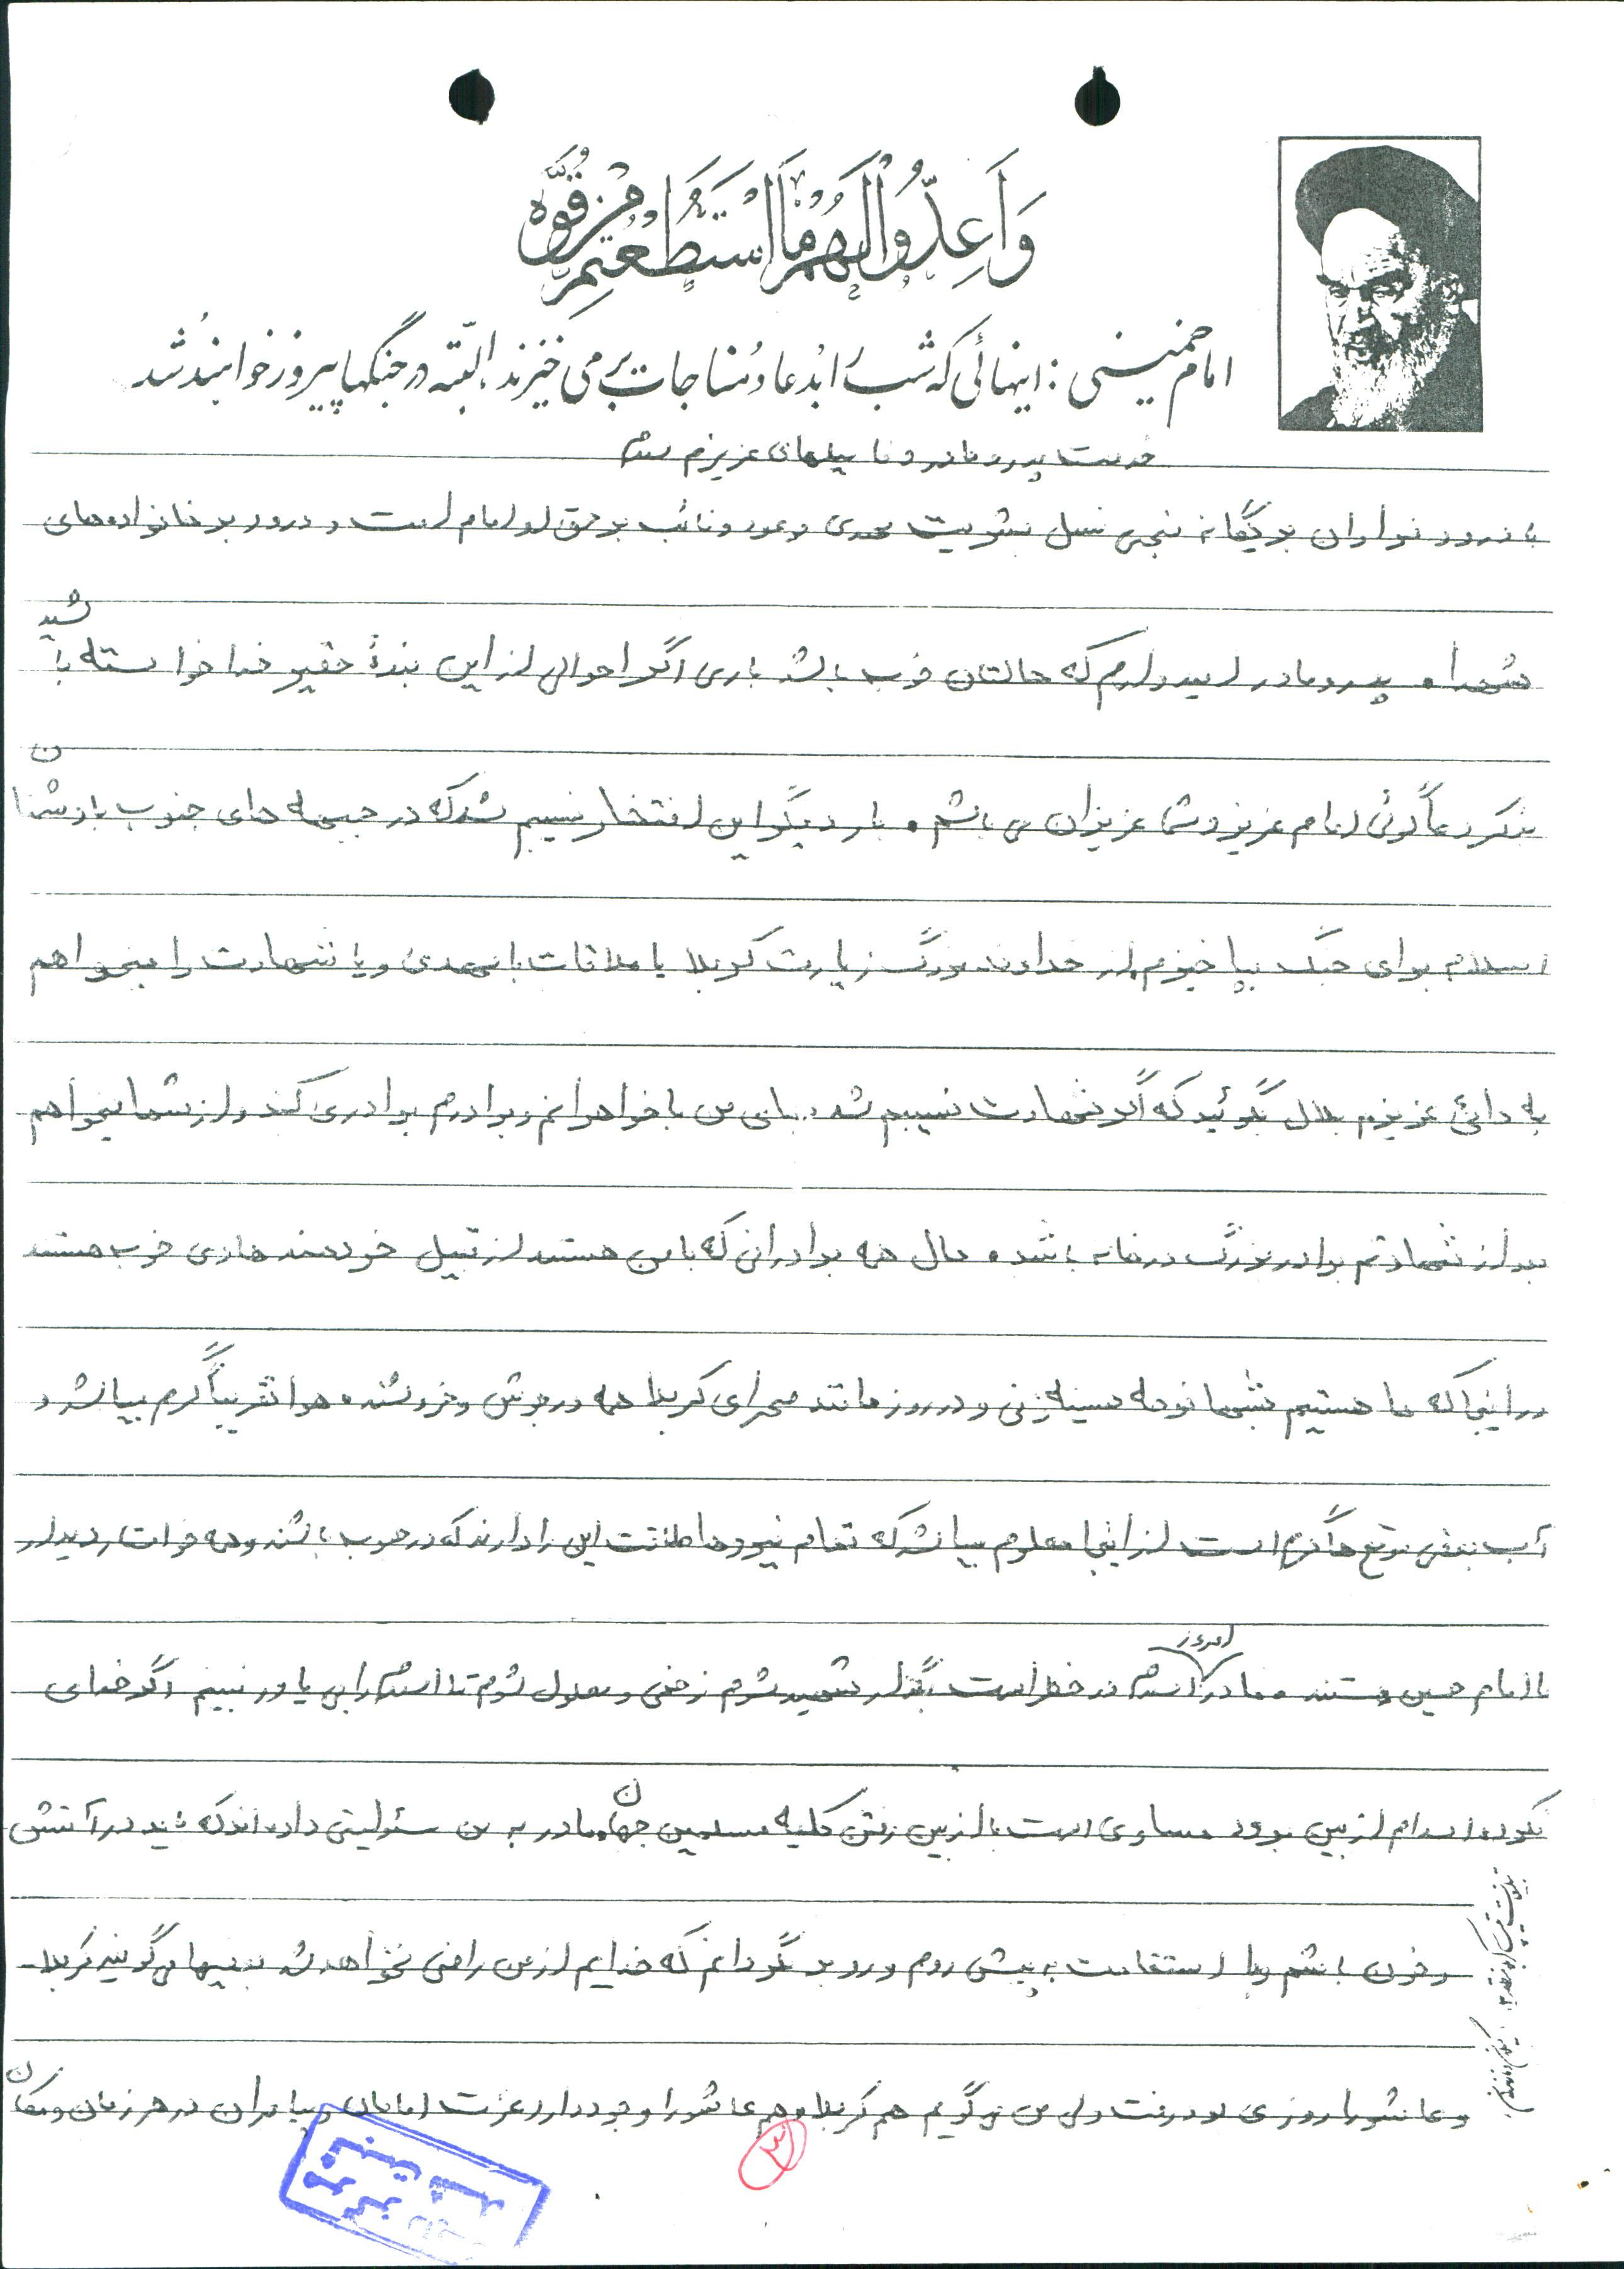 وَأَعِدُّوا لَهُمْ مَا اسْتَطَعْتُمْ مِنْ قُوَّةٍ
امام خمینی : اینهائی که شب را بدعا و مناجات برمی خیزند، البته در جنگها پیروز خواهند شد
خدمت پدر و مادر و فامیلهای عزیزم سلام
با درود فراوان بر یگانه منجی نسل بشریت مهدی موعود و نائب بر حق او امام امت و درود بر خانواده‌های
شهدا. پدر و مادر امیدوارم که حالتان خوب باشد باری اگر احوالی از این بندهٔ حقیر خدا خواسته باشید
بذکر دعاگوئی امام عزیز و شما عزیزان می باشم. بار دیگر این افتخار نسیبم شد که در جبهه های جنوب با دشمنان
اسلام برای جنگ بپا خیزم از خداوند بزرگ زیارت کربلا یا ملاقات با مهدی و یا شهادت را میخواهم
به دائی عزیزم بلال بگوئید که اگر شهادت نسیبم شد بجای من با خواهرانم و برادرم برادری کند و از شما میخواهم
بعد از شهادتم برادر بزرگ در خانه باشد. حال همه برادرانی که با من هستند از قبیل خردمند هادی خوب هستند
در اینجا که ما هستیم شبها نوحه سینه زنی و در روز مانند صحرای کربلا همه در جوش و خروشند. هوا تقریباً گرم میباشد و
آب بعضی موقع ها گرم است از اینجا معلوم میباشد که تمام نیروها طاقت این را دارند که در جنوب باشند و همه خواستار دیدار
با امام حسین هستند. مادر امروز اسلام در خطر است بگذار شهید شوم زخمی و معلول شوم تا اسلام را بی یاور نبینم اگر خدای
نکرده اسلام از بین برود مساوی است با از بین رفتن کلیه مسلمین جهان مادر به من مسئولیتی داده‌اند که باید در آتش
و خون باشم و با استقامت به پیش روم و رو بر نگردانم که خدایم از من راضی نخواهد شد بعضیها می گویند کربلا
و عاشورا روزی بود رفت ولی من می گویم هم کربلا و هم عاشورا وجود دارد عزت امامان و پیامبران در هر زمان و مکان
۳
مرکز
ثبت شد